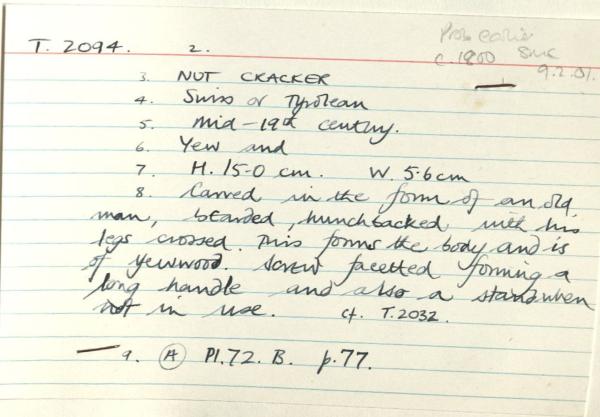 T. 2094. 2. Prob earlier
c. 1800 SMK
9.2.01.
3. NUT CRACKER
4. Swiss or Tyrolean
5. Mid-19th century.
6. Yew and
7. H. 15.0 cm. W. 5.6 cm
8. Carved in the form of an old
man, bearded, hunchbacked with his
legs crossed. This forms the body and is
of yewwood. Screw facetted forming a
long handle and also a stand when
not in use. cf. T.2032.
9. A Pl.72. B. p.77.